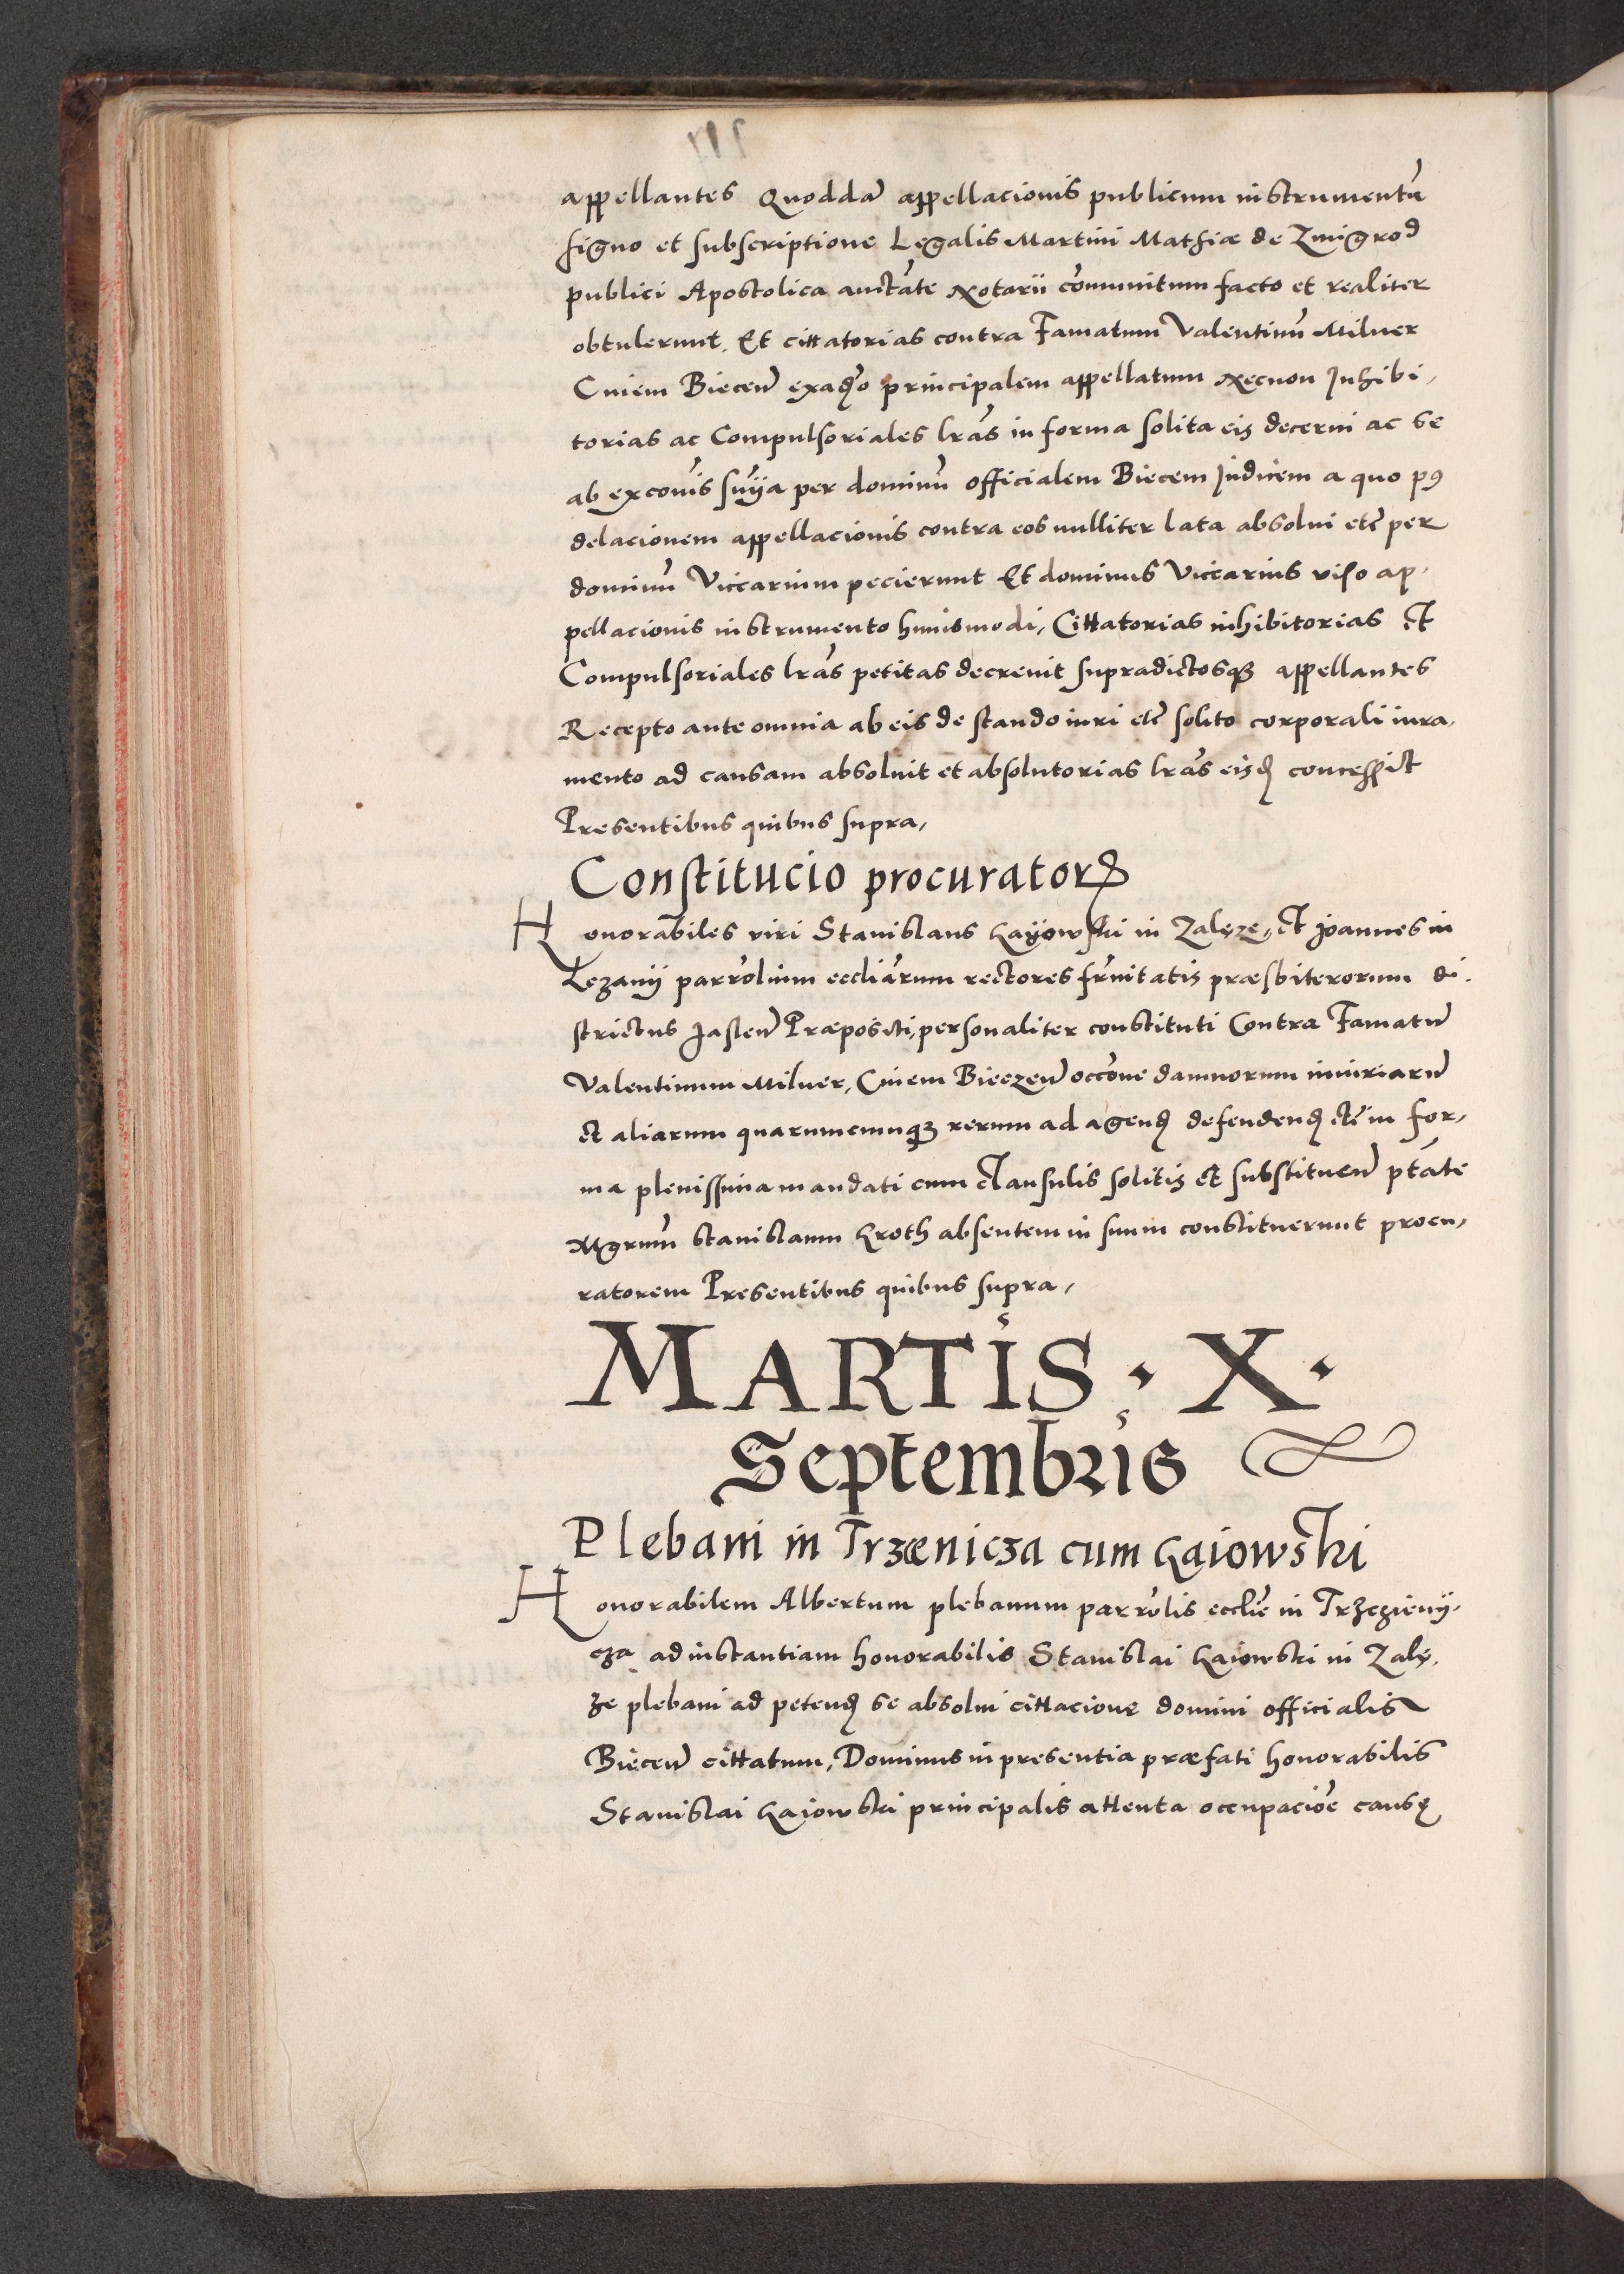 appellantes Quoddā appellacionis publicum instrumentū
signo et subscriptione Legalis Martini Mathiæ de Zmigrod
publici Apostolica auctāte Notarii cōmunitum facto et realiter
obtulerunt. Et cittatorias contra Famatum Valentinū Milner
Civem Biecen̄ exaďo principalem appellatum Necnon Inhibi,
torias ac Compulsoriales lrās in forma solita eis decerni ac se
ab excōis snīja per dominū officialem Biecen̄ Iudicem a quo pꝯ
delacionem appellacionis contra eos nulliter lata absolvi etc̄ per
dominū Viccarium pecierunt Et dominus Viccarius viso ap,
pellacionis instrumento huiusmodi, Cittatorias inhibitorias et
Compulsoriales lrās petitas decrevit supradictosqꝫ appellantes
Recepto ante omnia ab eis de stando iuri etc̄ solito corporali iura,
mento ad causam absolvit et absolutorias lrās eisđ concessit
Presentibus quibus supra,
Constitucio procuratorꝝ
Honorabiles viri Stanislaus Gayowski in Zalęze, et Joannes in
Lezanÿ parrōlium eccliārum rectores fr̄nitatis præsbiterorum di,
strictus Jaslen̄ Præpositi, personaliter constituti Contra Famatū
Valentinum Milner, Civem Bieczen̄ occōne damnorum iniuriarū
et aliarum quarumcumqꝫ rerum ad agenđ defendenđ etc̄ in for,
ma plenissima mandati cum Clausulis solitis et substituen̄ ptāte
Mgrum̄ Stanislaum Groth absentem in suum constituerunt procu,
ratorem Presentibus quibus supra,
MARTIS · X ·
Septembris
Plebani in Trzænicza cum Gaiowski
Honorabilem Albertum plebanum parrōlis ecclīe in Trzczienÿ,
cza ad instantiam honorabilis Stanislai Gaiowski in Zalę,
ze plebani ad petenđ se absolvi cittacione domini officialis
Biecen̄ cittatum, Dominus in presentia præfati honorabilis
Stanislai Gaiowski principalis attenta occupaciōe causę